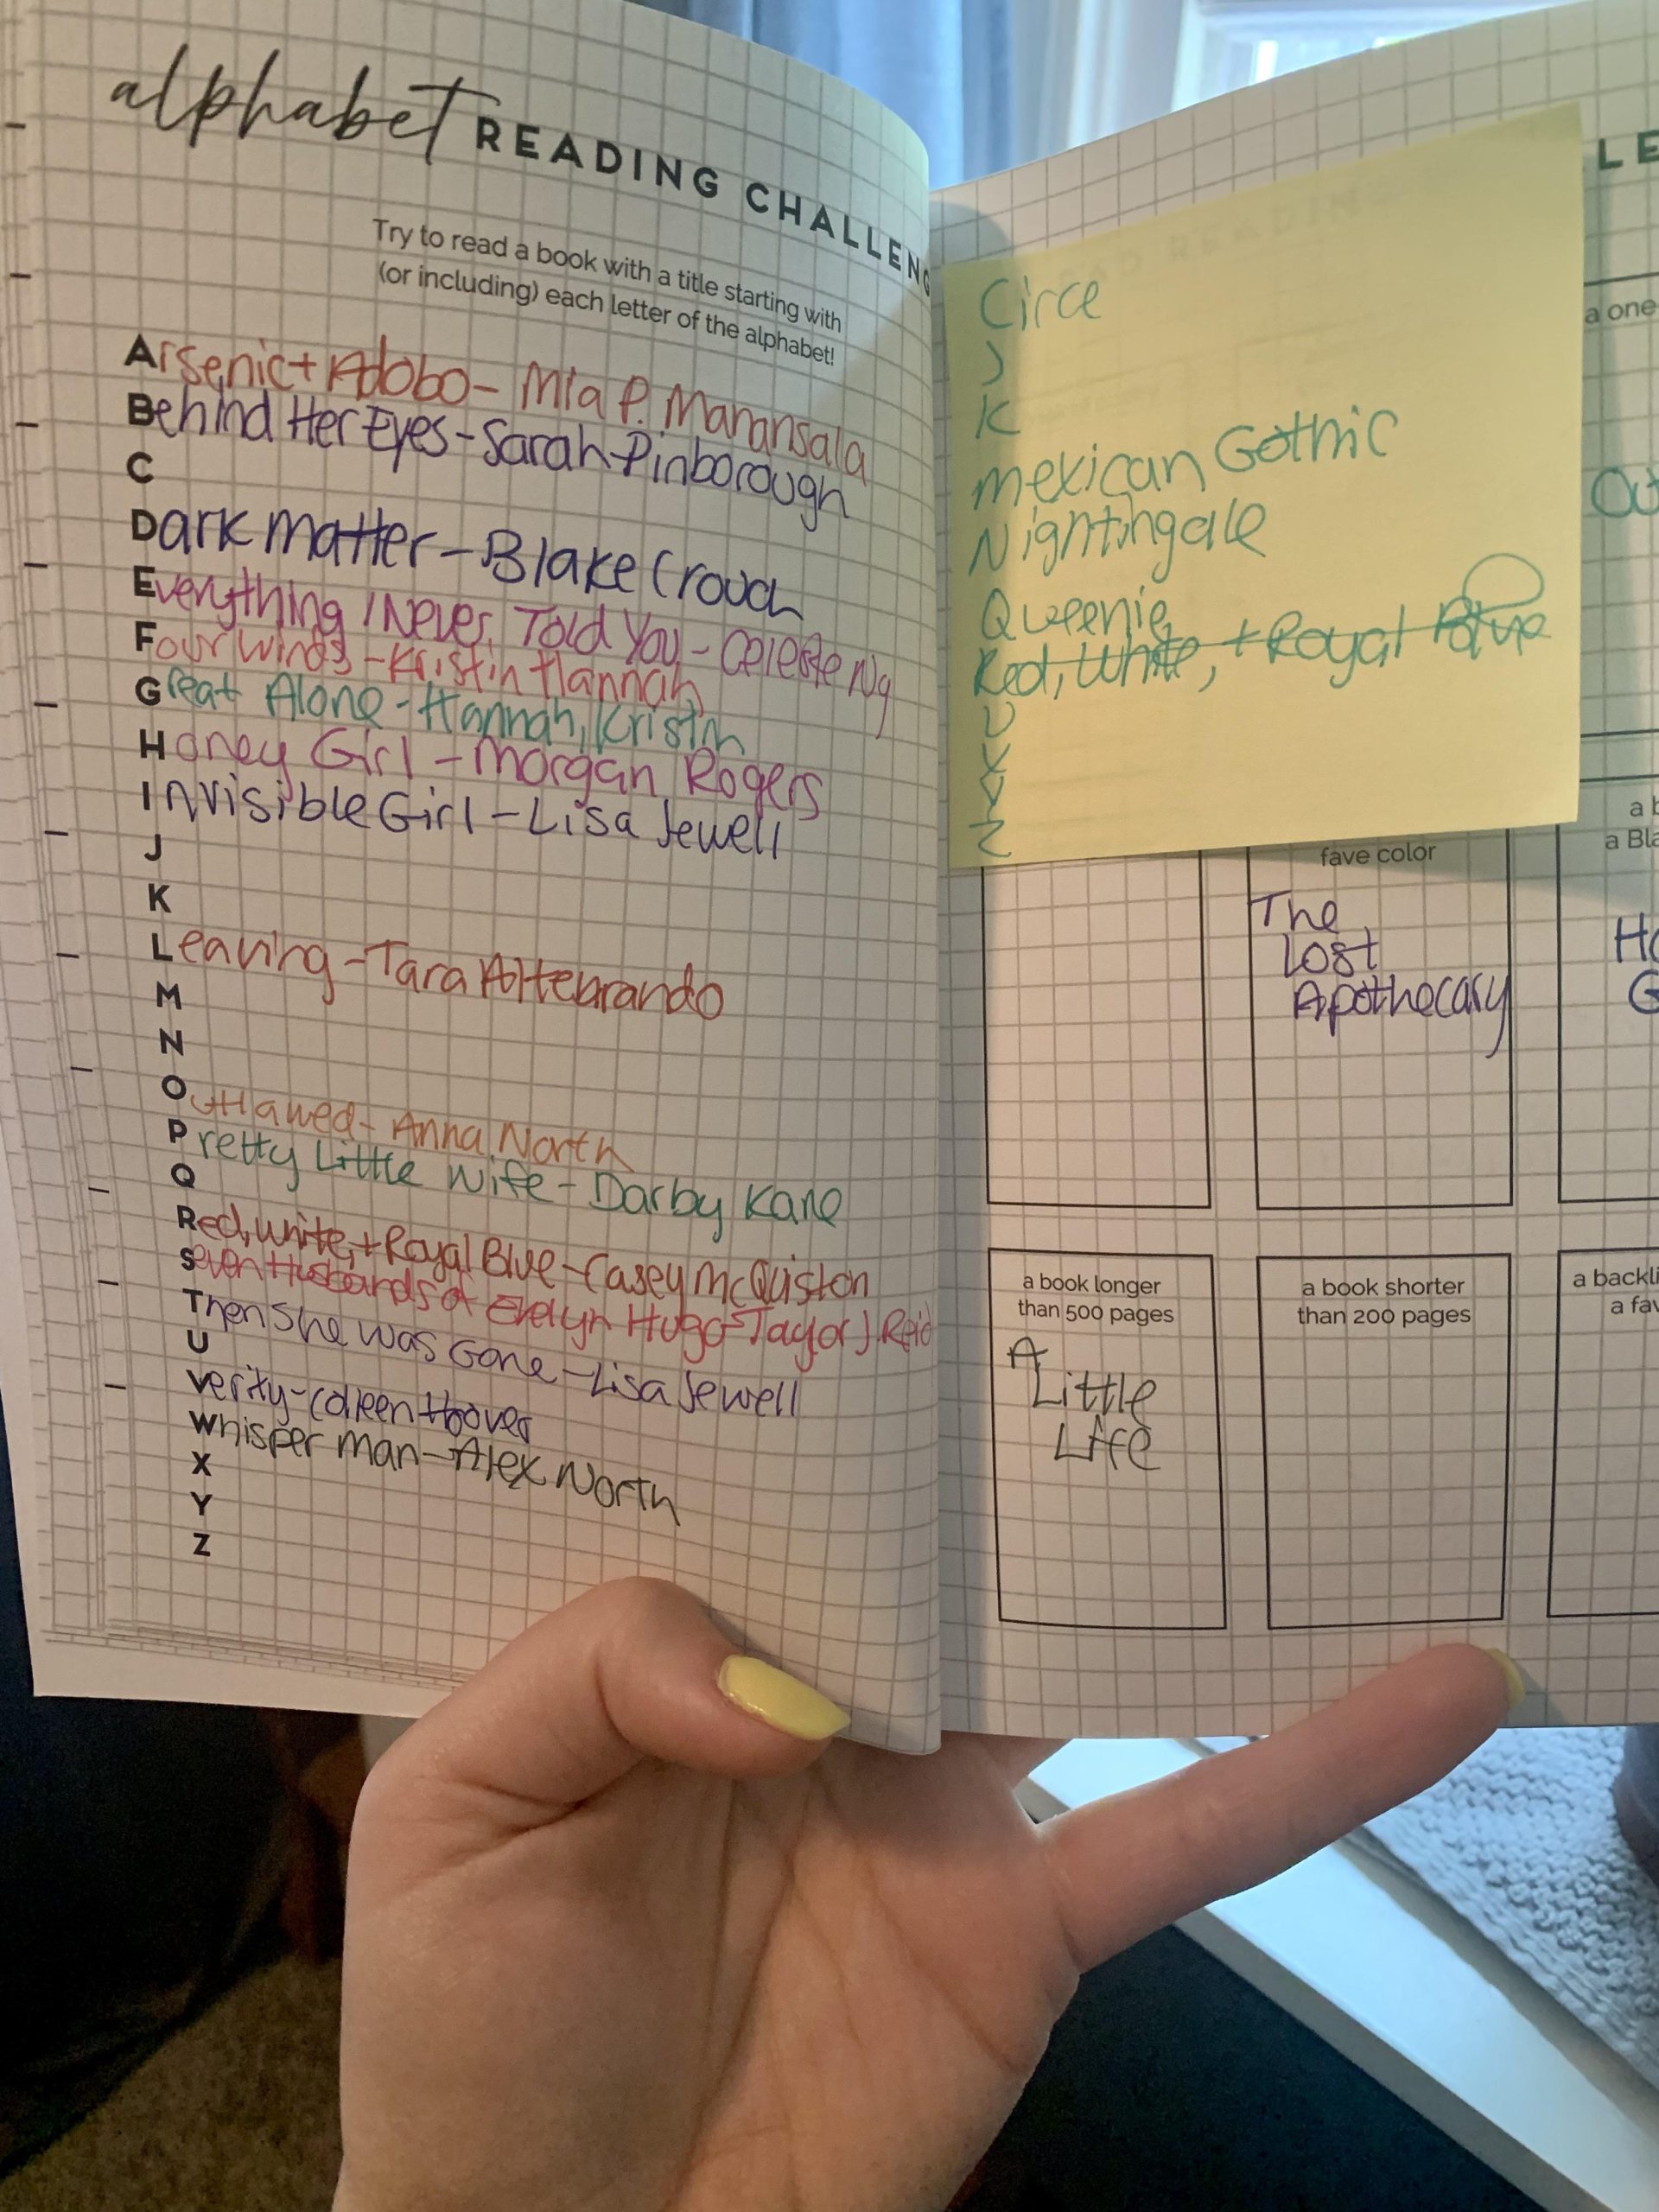 alphabet READING CHALLENG
Try to read a book with a title starting with
(or including) each letter of the alphabet!
Arsenic + Adobo - Mia P. Manansala
Behind Her Eyes - Sarah Pinborough
C
Dark Matter - Blake Crouch
Everything I Never Told You - Celeste Ng
Four Winds - Kristin Hannah
Great Alone - Hannah, Kristin
Honey Girl - Morgan Rogers
Invisible Girl - Lisa Jewell
J
K
Leaving - Tara Altebrando
M
N
Outlawed - Anna North
Pretty Little Wife - Darby Kane
Q
Red, White, + Royal Blue - Casey McQuiston
Seven Husbands of Evelyn Hugo - Taylor J Reid
Then She Was Gone - Lisa Jewell
U
Verity - Colleen Hoover
Whisper Man - Alex North
X
Y
Z
Circe
J
K
Mexican Gothic
Nightingale
Queenie
Red, White, + Royal Blue
U
X
Y
Z
LE
a one
Out
fave color
The
Lost
Apothecary
a b
a Bla
Ho
G
a book longer
than 500 pages
A
Little
Life
a book shorter
than 200 pages
a backli
a fav